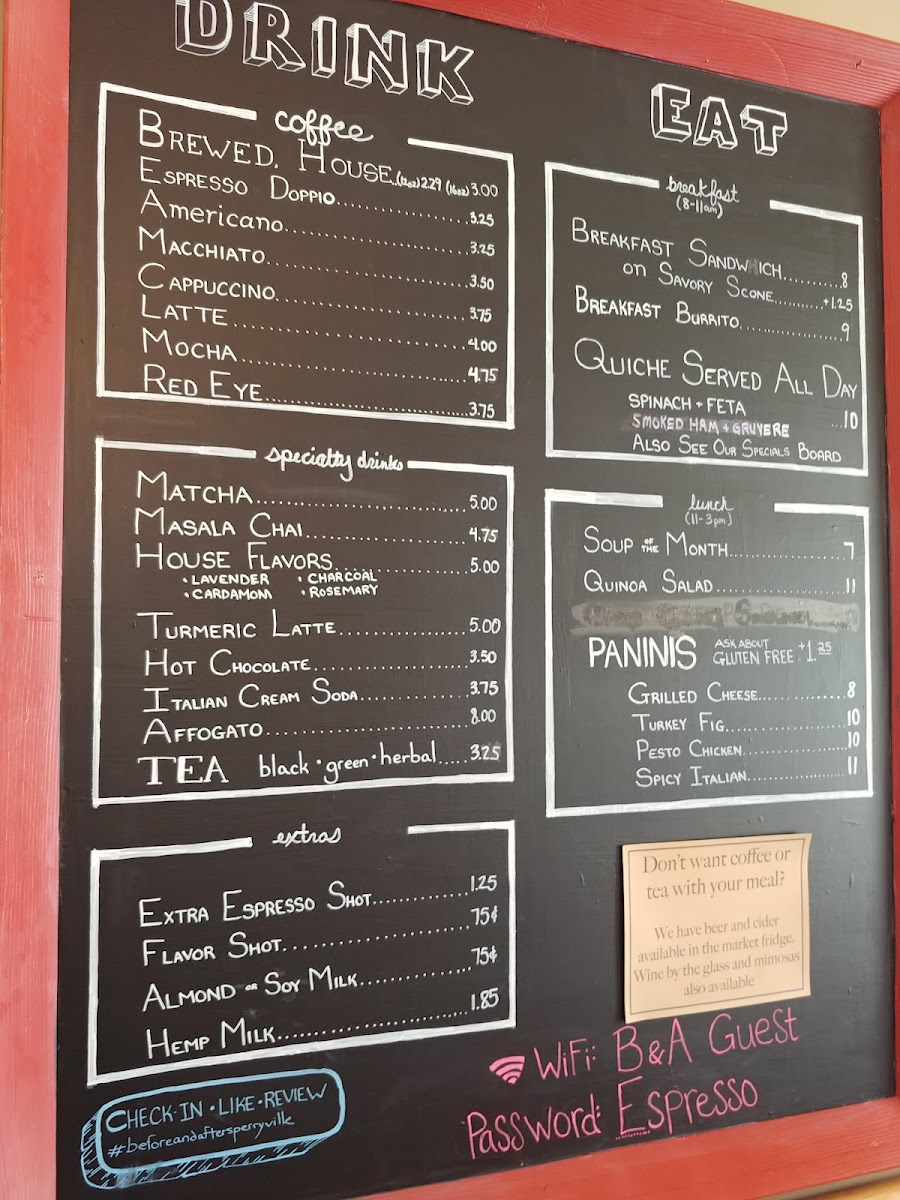 DRINK
coffee
BREWED, HOUSE..(12oz) 2.29 (16oz) 3.00
ESPRESSO DOPPIO....................3.25
Americano..........................3.25
MACCHIATO..........................3.50
CAPPUCCINO.........................3.75
LATTE..............................4.00
MOCHA..............................4.75
RED EYE............................3.75
specialty drinks
MATCHA.............................5.00
MASALA CHAI........................4.75
HOUSE FLAVORS......................5.00
• LAVENDER • CHARCOAL
• CARDAMOM • ROSEMARY
TURMERIC LATTE.....................5.00
HOT CHOCOLATE......................3.50
ITALIAN CREAM SODA.................3.75
AFFOGATO...........................8.00
TEA black • green • herbal.....3.25
extras
EXTRA ESPRESSO SHOT................1.25
FLAVOR SHOT........................75¢
ALMOND OR SOY MILK.................75¢
HEMP MILK..........................1.85
CHECK-IN • LIKE • REVIEW
#beforeandaftersperryville
EAT
breakfast
(8-11am)
BREAKFAST SANDWICH.........8
on SAVORY SCONE..........+1.25
BREAKFAST BURRITO..............9
QUICHE SERVED ALL DAY
SPINACH + FETA ...10
SMOKED HAM + GRUYERE
ALSO SEE OUR SPECIALS BOARD
lunch
(11-3pm)
SOUP OF THE MONTH..............7
QUINOA SALAD...................11
PANINIS ASK ABOUT GLUTEN FREE +1.25
GRILLED CHEESE..............8
TURKEY FIG..................10
PESTO CHICKEN...............10
SPICY ITALIAN...............11
Don't want coffee or
tea with your meal?
We have beer and cider
available in the market fridge.
Wine by the glass and mimosas
also available
WiFi: B&A Guest
Password: Espresso